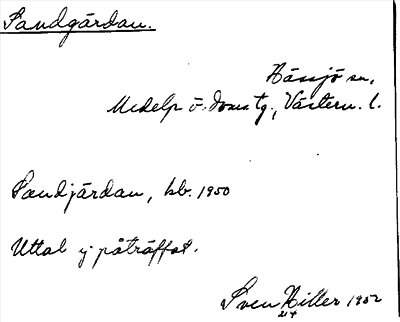 Sandgårdan.
Hässjö sn,
Medelp ö. doms tg., Västern. l.
Sandjårdan, kb. 1950
Uttal ej påträffat.
Sven Hiller 1952